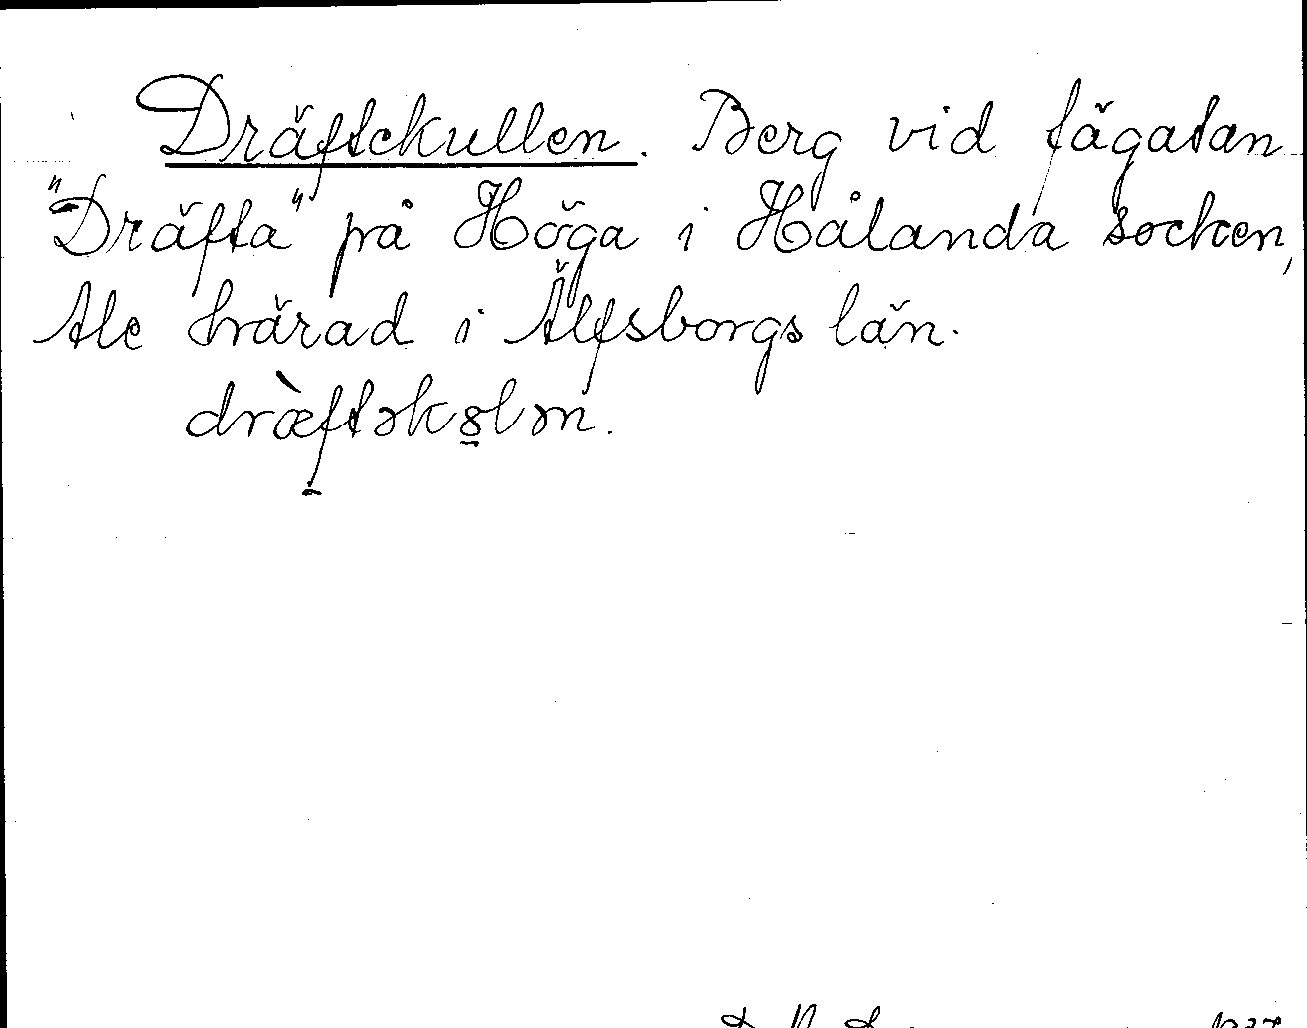 Dräftekullen. Berg vid fägatan
"Dräfta" på Höga i Hålanda socken,
Ale härad i Älfsborgs län.
dræ̀ftəkslən.